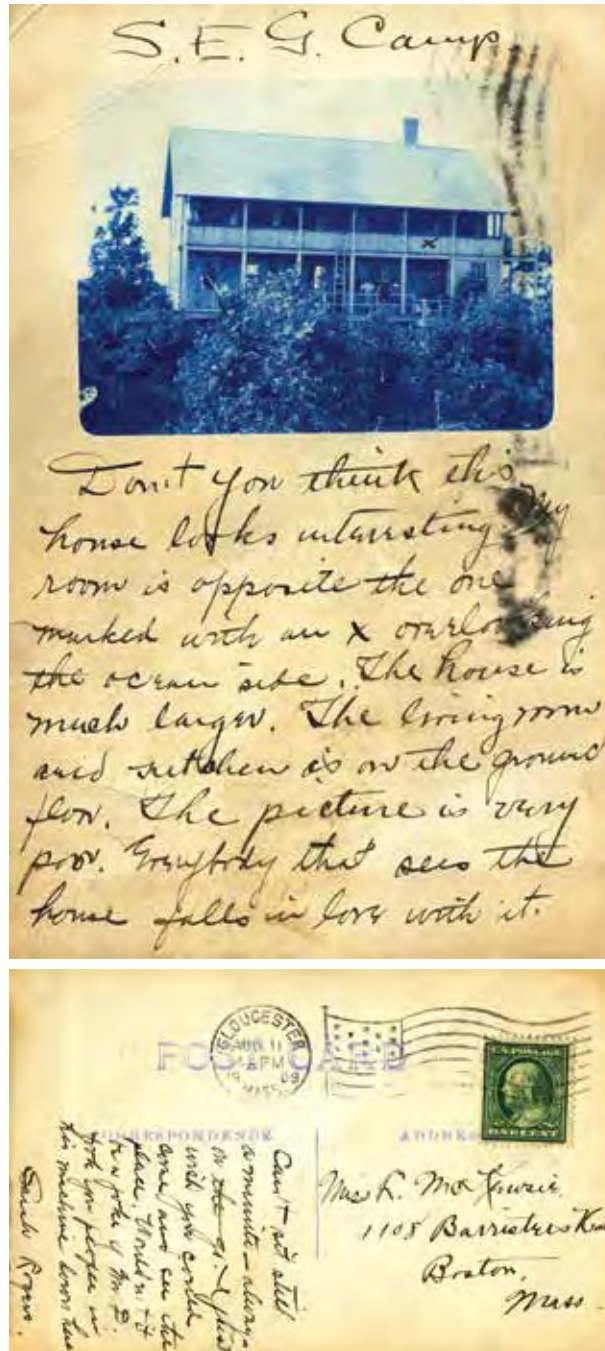 S.E.G. Camp
Don't you think this
house looks interesting. My
room is opposite the one
marked with an X overlooking
the ocean side. The house is
much larger. The living room
and kitchen is on the ground
floor. The picture is very
poor. Everybody that sees the
house falls in love with it.
GLOUCESTER
AUG 11
PM
19 09
MASS.
POST CARD
CORRESPONDENCE
ADDRESS
ONE CENT
Miss R.
1108 Barristers
Boston,
Mass.
Can't sit still
a minute - always
on the go. I wish
with you could
come and see the
place. Wouldn't it
be a joke if Mr. D.
took you people in
his machine down here
Sarah Rogers.